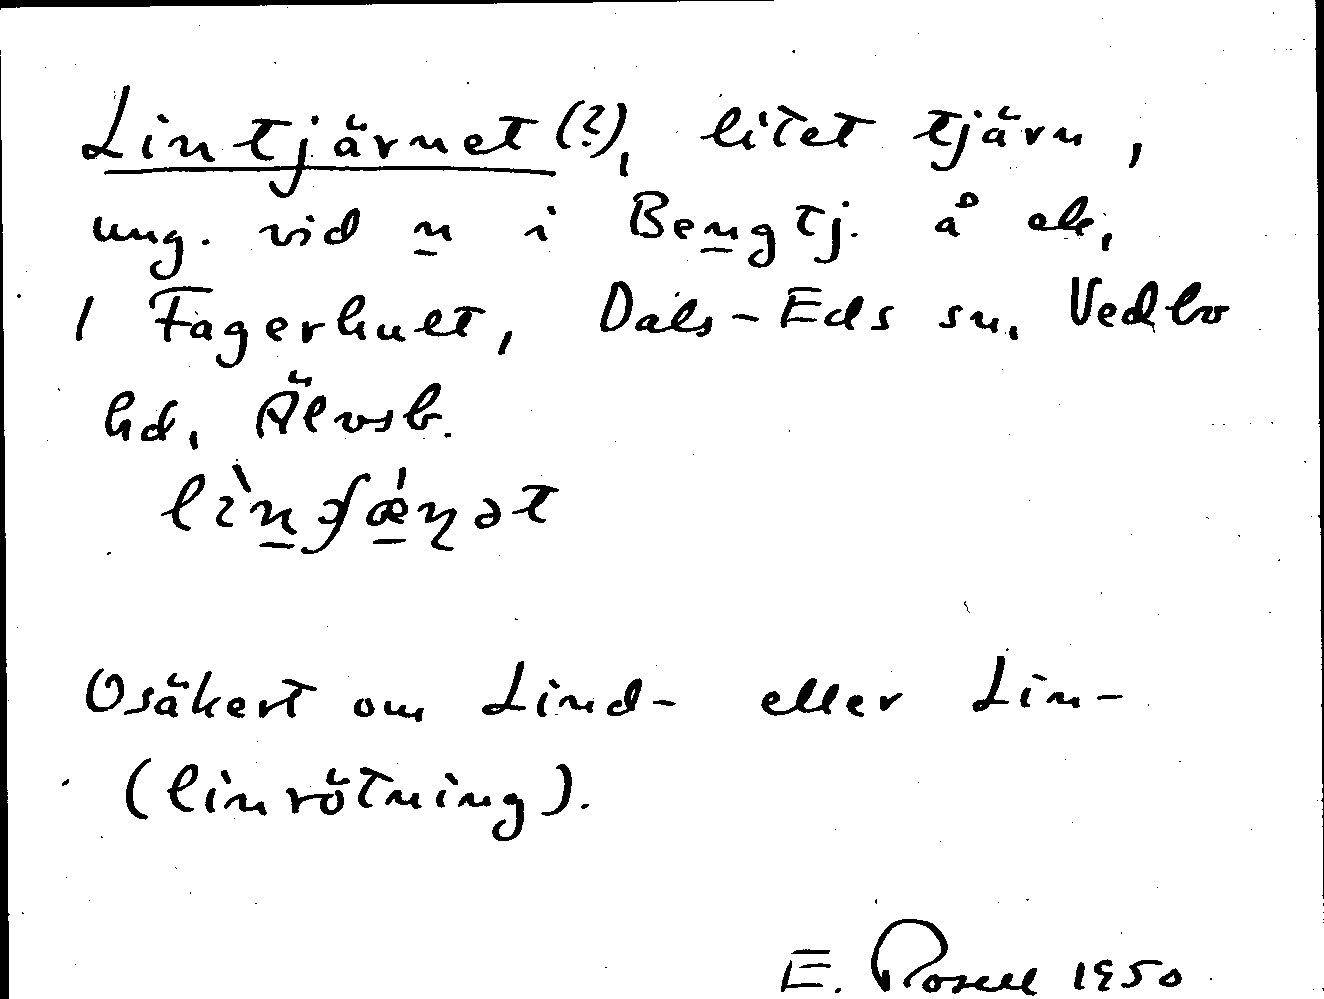 Lintjärnet (?), litet tjärn,
ung. vid n i Bengtj. å ek,
1 Fagerhult, Dals-Eds sn, Vedbo
hd, Älvsb.
Osäkert om Lind- eller Lin-
(linrötning).
E. Rosell 1950